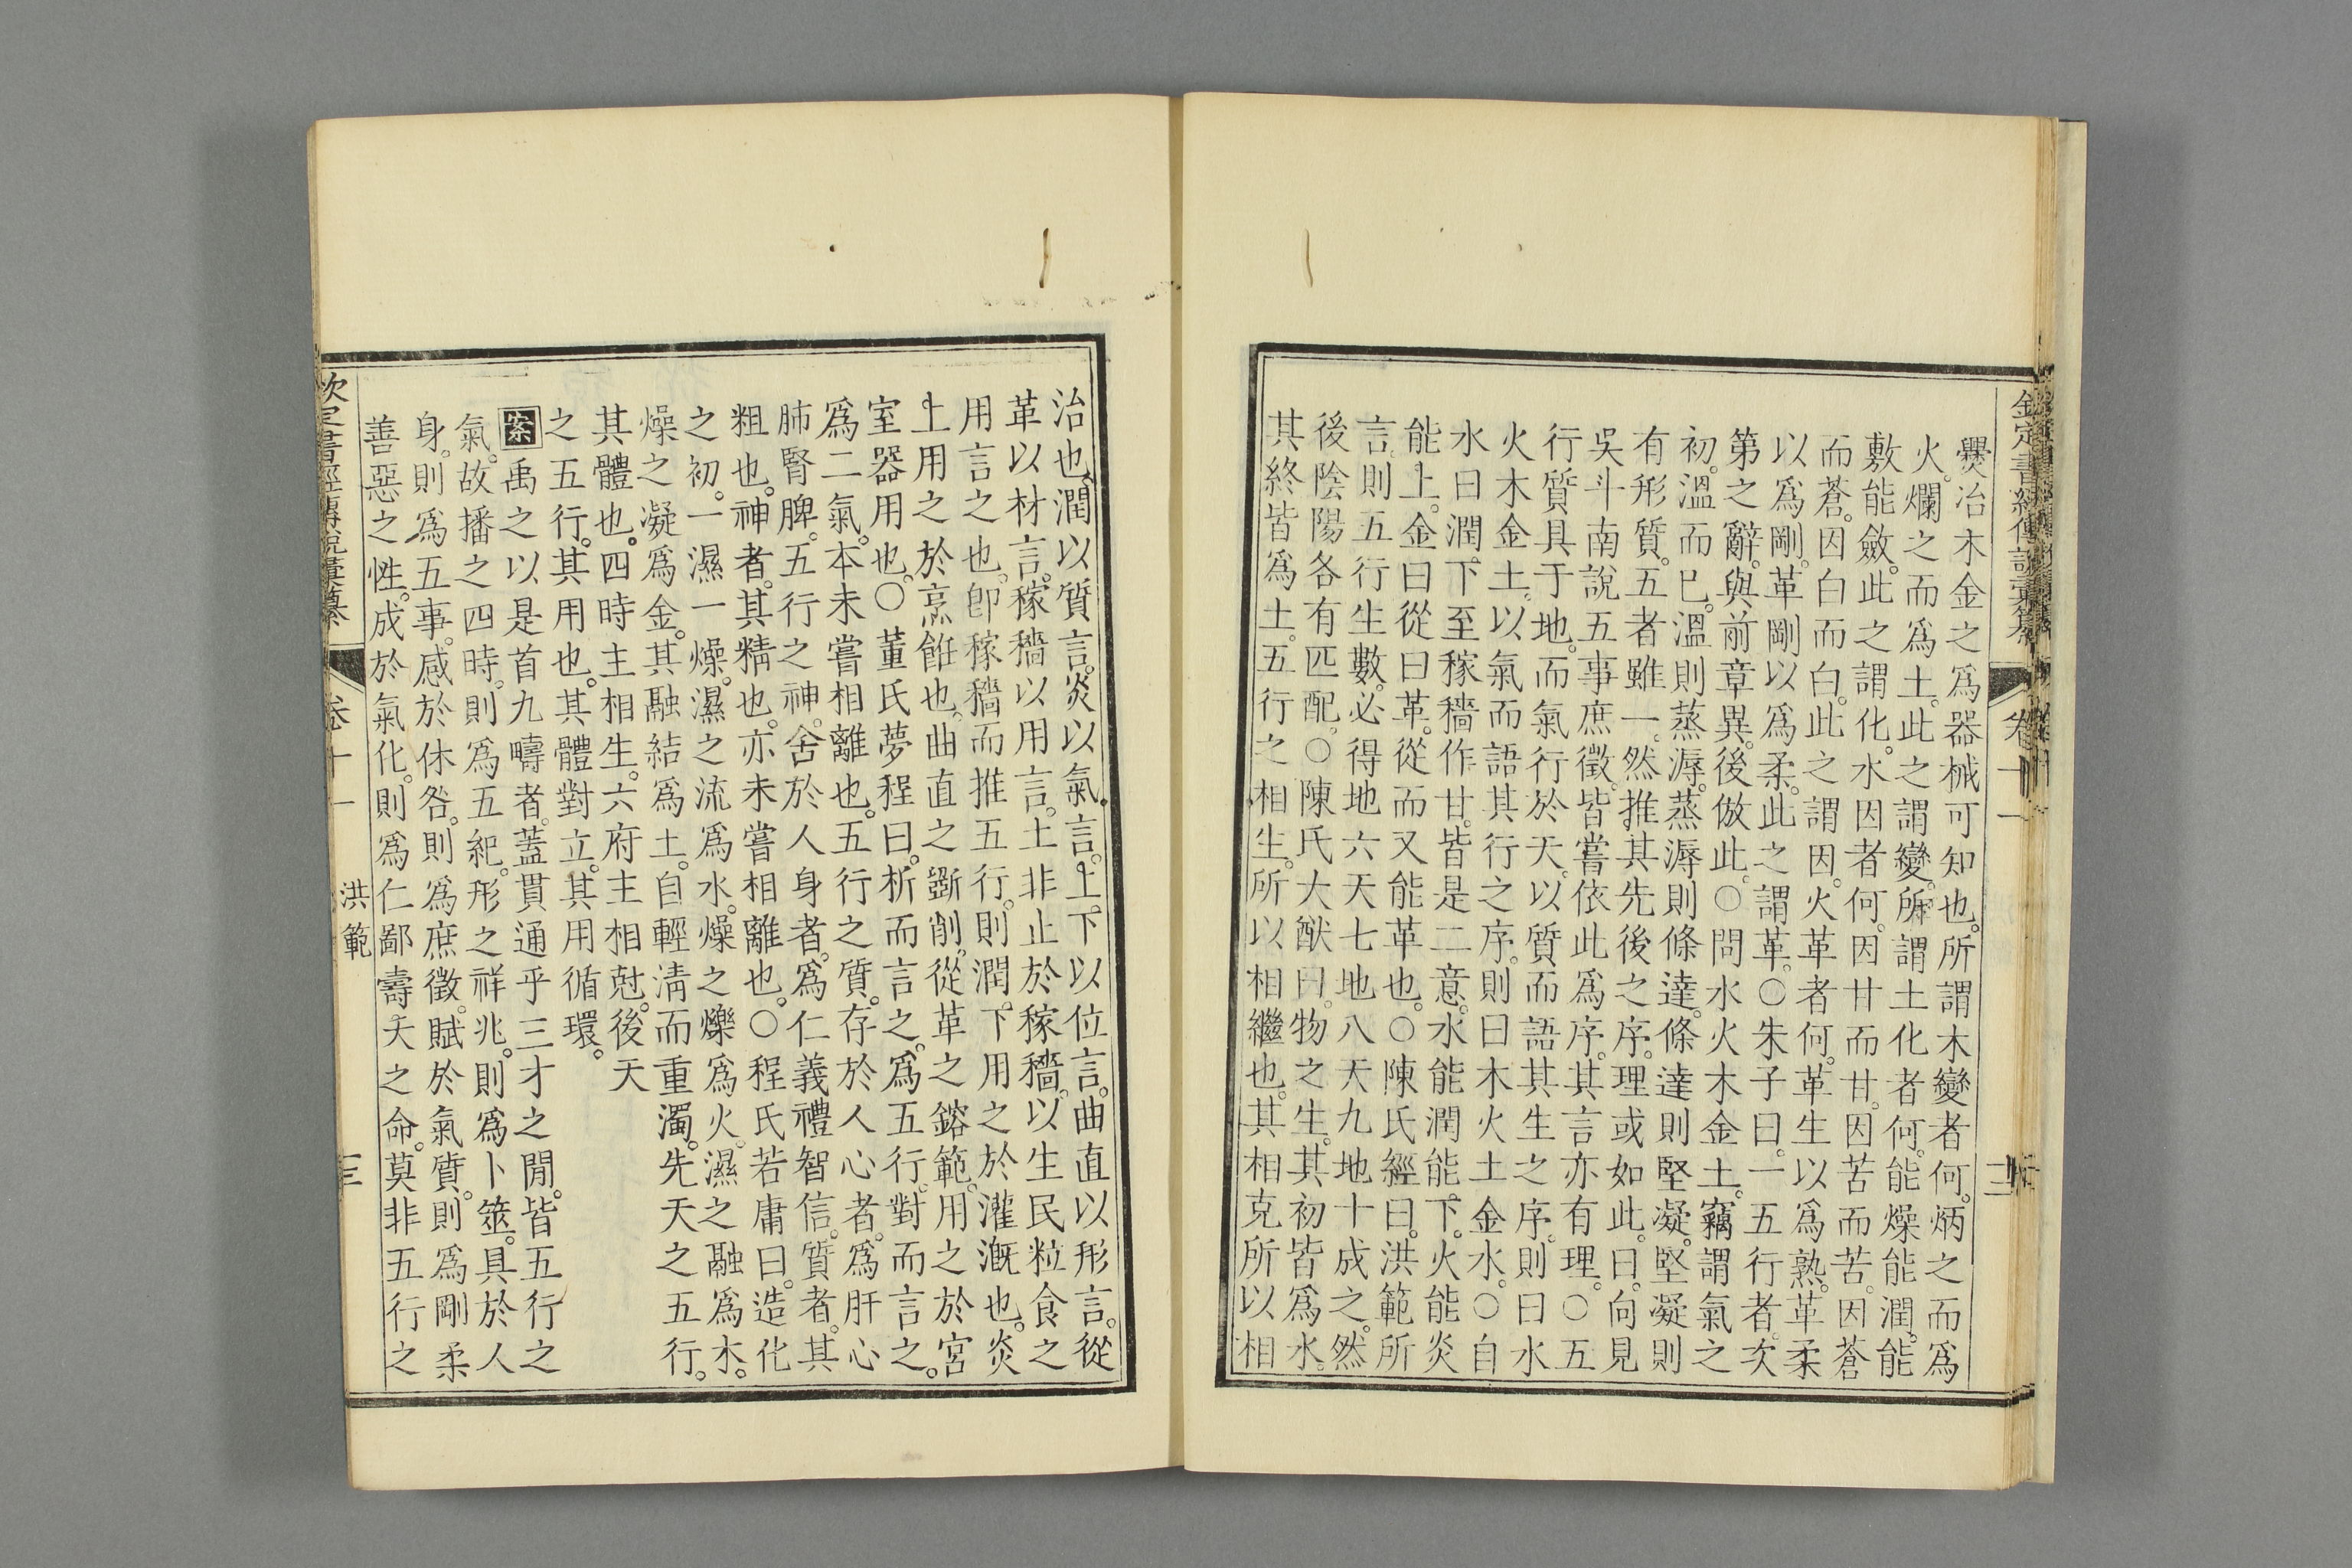 欽定書經傳說彙纂 卷十一
爨冶木金之爲器械可知也。所謂木變者何。炳之而爲
火。爛之而爲土。此之謂變。所謂土化者何。能燥能潤。能
敷能斂。此之謂化。水因者何。因甘而甘。因苦而苦。因蒼
而蒼。因白而白。此之謂因。火革者何。革生以爲熟。革柔
以爲剛。革剛以爲柔。此之謂革。○朱子曰。一五行者。次
第之辭。與前章異。後倣此。○問水火木金土。竊謂氣之
初。溫而已。溫則蒸溽。蒸溽則條達。條達則堅凝。堅凝則
有形質。五者雖一。然推其先後之序。理或如此。曰。向見
吳斗南說五事庶徵。皆嘗依此爲序。其言亦有理。○五
行質具于地。而氣行於天。以質而語其生之序。則曰水
火木金土。以氣而語其行之序。則曰木火土金水。○自
水曰潤。下至稼穡作甘。皆是二意。水能潤能下。火能炎
能上。金曰從曰革。從而又能革也。○陳氏經曰。洪範所
言。則五行生數。必得地六天七地八天九地十成之。然
後陰陽各有匹配。○陳氏大猷曰。物之生。其初皆爲水。
其終皆爲土。五行之相生。所以相繼也。其相克所以相
治也。潤以質言。炎以氣言。上下以位言。曲直以形言。從
革以材言。稼穡以用言。土非止於稼穡。以生民粒食之
用言之也。卽稼穡而推五行。則潤下用之於灌漑也。炎
上用之於烹飪也。曲直之斵削。從革之鎔範。用之於宮
室器用也。○董氏夢程曰。析而言之。爲五行。對而言之。
爲二氣。本未嘗相離也。五行之質。存於人心者。爲肝心
肺腎脾。五行之神。舍於人身者。爲仁義禮智信。質者。其
粗也。神者。其精也。亦未嘗相離也。○程氏若庸曰。造化
之初。一濕一燥。濕之流爲水。燥之爍爲火。濕之融爲木。
燥之凝爲金。其融結爲土。自輕淸而重濁。先天之五行。
其體也。四時主相生。六府主相尅。後天
之五行。其用也。其體對立。其用循環。
案禹之以是首九疇者。蓋貫通乎三才之閒。皆五行之
氣。故播之四時。則爲五紀。形之祥兆。則爲卜筮。具於人
身。則爲五事。感於休咎。則爲庶徵。賦於氣質。則爲剛柔
善惡之性。成於氣化。則爲仁鄙壽夭之命。莫非五行之
欽定書經傳說彙纂 卷十一 洪範 三